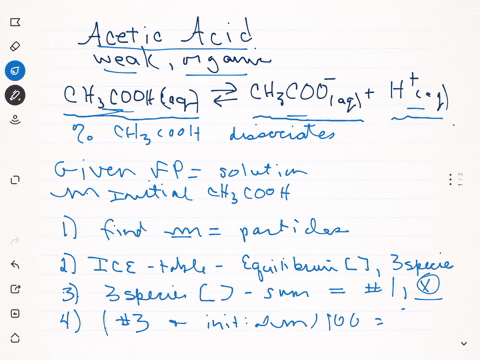 Acetic Acid
weak, organic
CH3COOH(aq) ⇄ CH3COO-(aq) + H+(aq)
% CH3COOH dissociates
Given FP = solution
m Initial CH3COOH
1) find m = particles
2) ICE-table - Equilibrium [ ], 3 specie
3) 3 species [ ] - sum = #1, X
4) (#3 initial m) 100 =